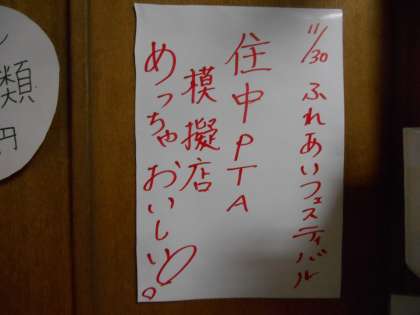 11/30 ふれあいフェスティバル
住中PTA
模擬店
めっちゃおいしい。
類
円